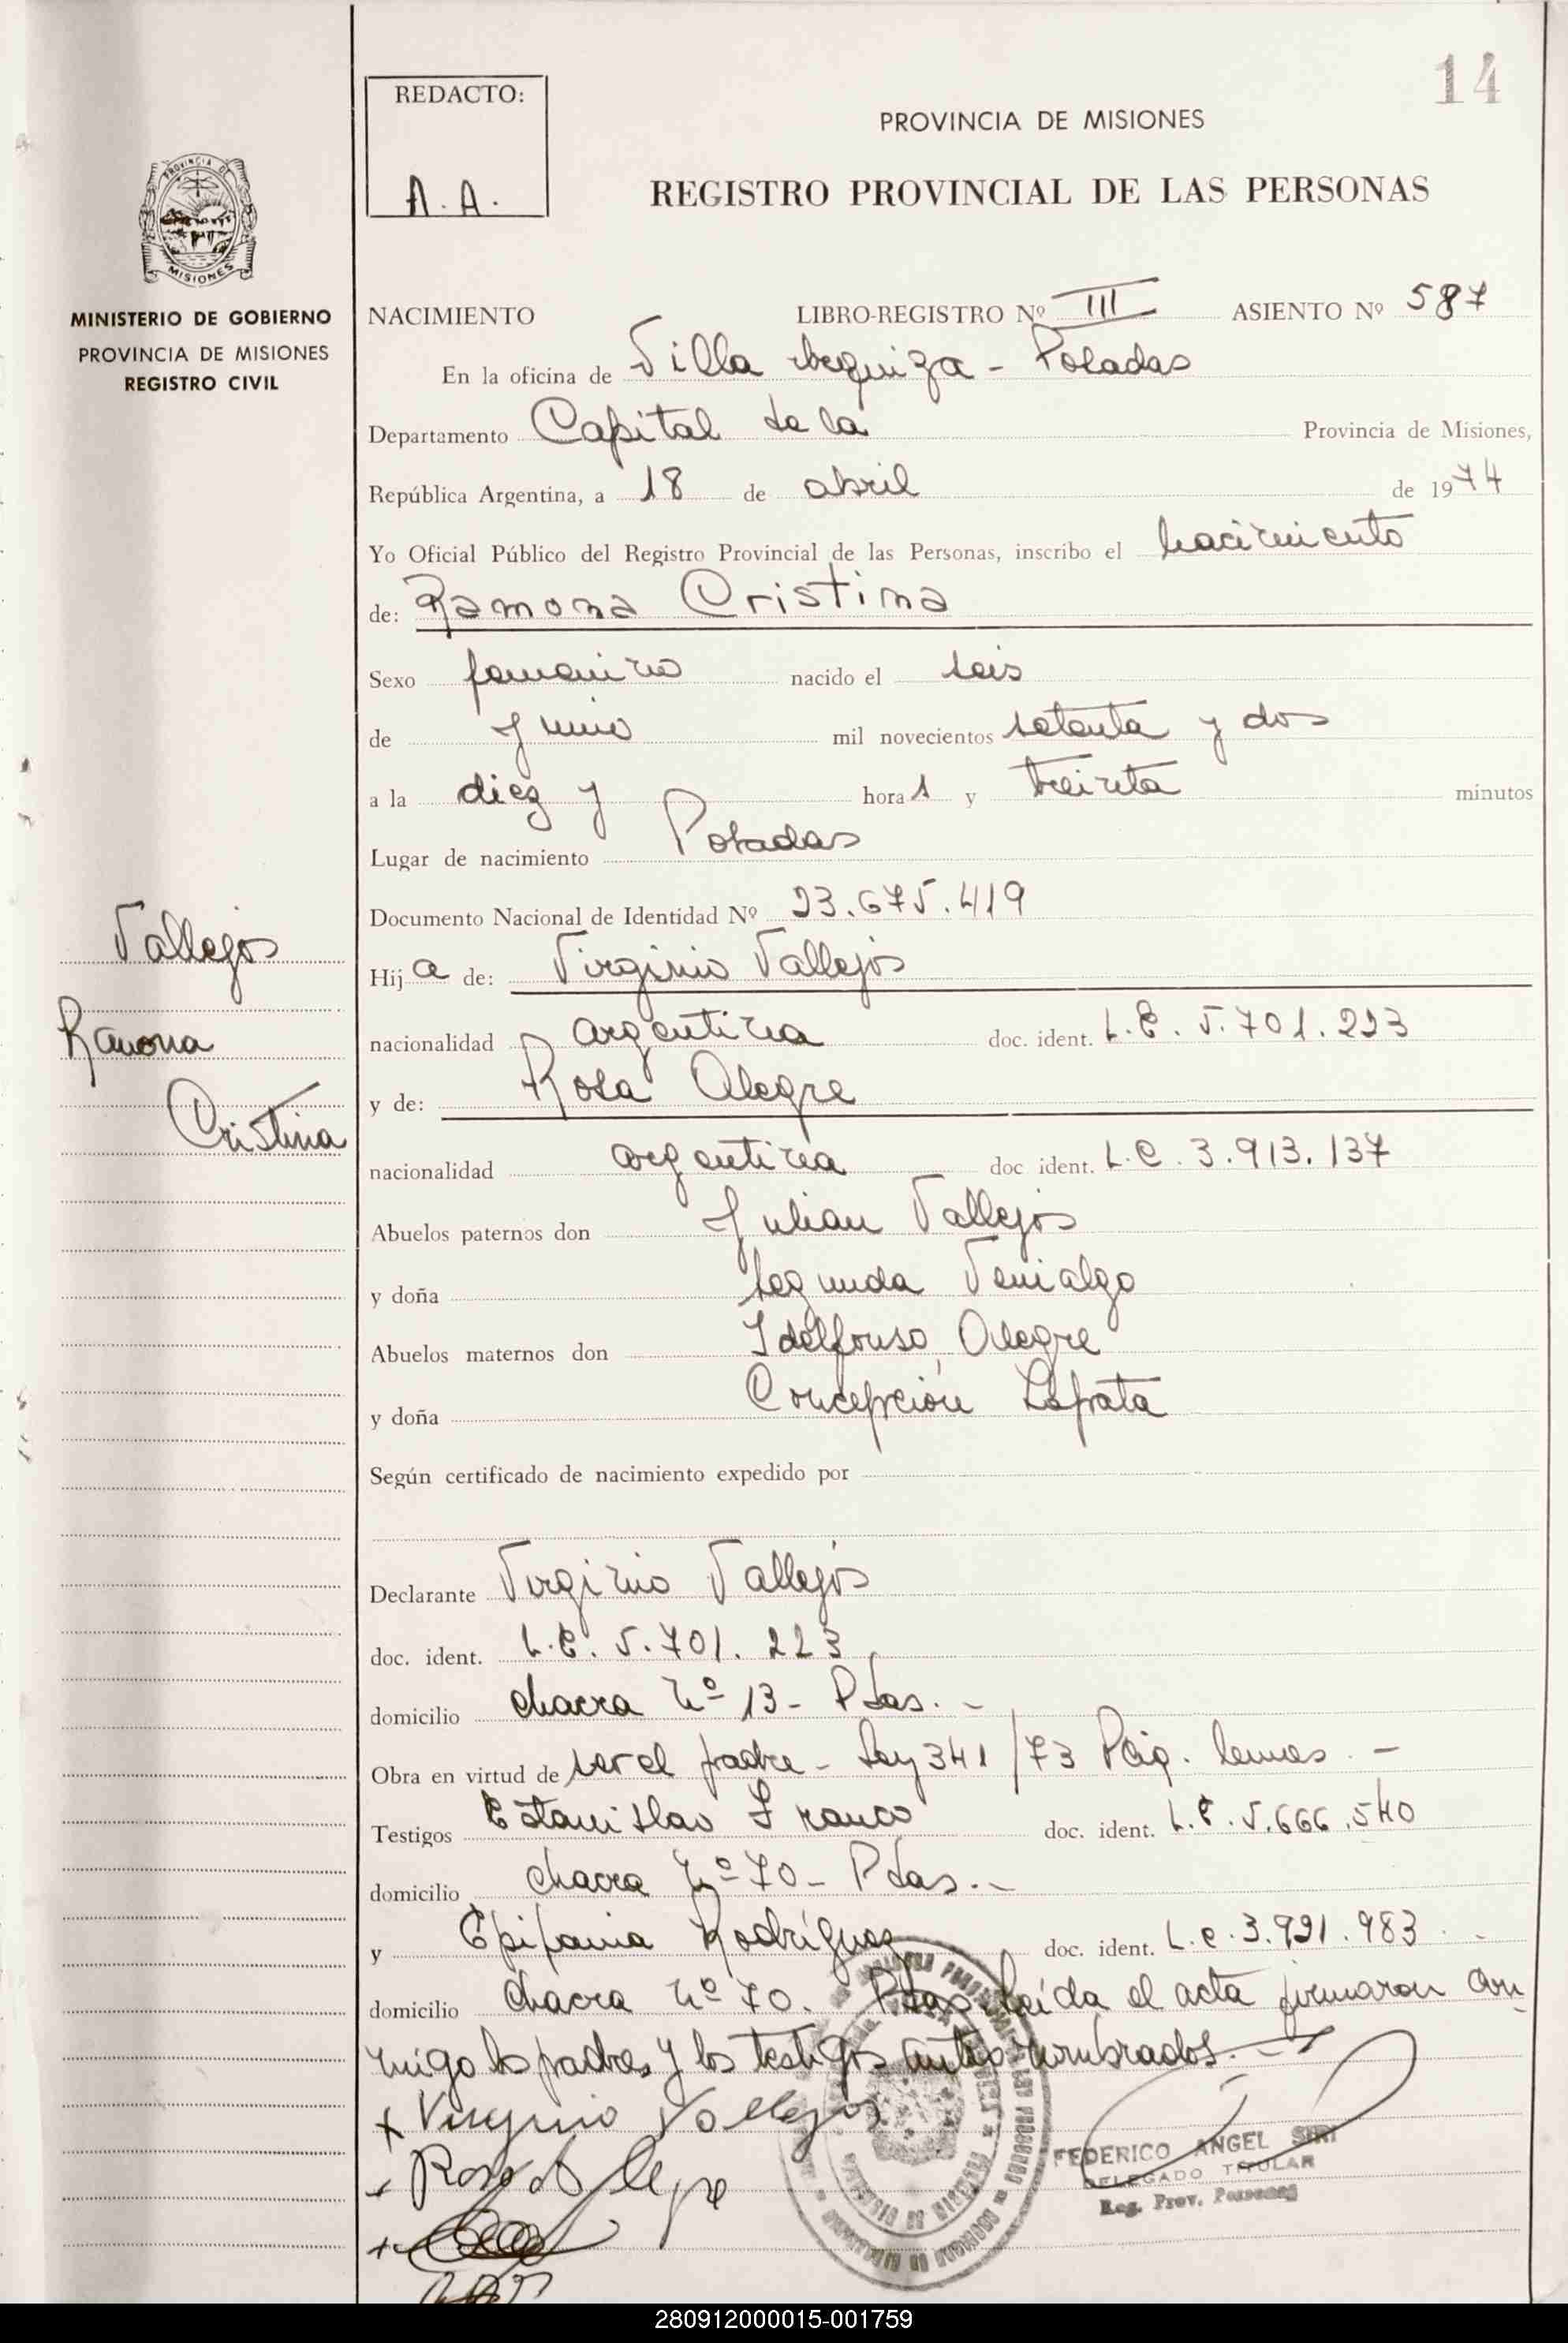 14
REDACTO:
A. A.
PROVINCIA DE MISIONES
REGISTRO PROVINCIAL DE LAS PERSONAS
PROVINCIA DE
MISIONES
MINISTERIO DE GOBIERNO
PROVINCIA DE MISIONES
REGISTRO CIVIL
NACIMIENTO LIBRO-REGISTRO Nº III ASIENTO Nº 587
En la oficina de Villa Urquiza - Posadas
Departamento Capital de la Provincia de Misiones,
República Argentina, a 18 de abril de 1974
Yo Oficial Público del Registro Provincial de las Personas, inscribo el nacimiento
de: Ramona Cristina
Sexo femenino nacido el seis
de Junio mil novecientos setenta y dos
a la diez y hora s y treinta minutos
Lugar de nacimiento Posadas
Documento Nacional de Identidad Nº 23.675.419
Vallejos
Ramona
Cristina
Hij a de: Virginio Vallejos
nacionalidad argentina doc. ident. L.E. 5.701.223
y de: Rosa Alegre
nacionalidad argentina doc ident. L.C. 3.913.137
Abuelos paternos don Julian Vallejos
y doña Segunda Venialgo
Abuelos maternos don Idelfonso Alegre
y doña Concepción
Según certificado de nacimiento expedido por
Declarante Virginio Vallejos
doc. ident. L.E. 5.701.223
domicilio chacra Nº 13 - Pdas. -
Obra en virtud de ser el padre - Ley 341/73
Testigos Estanislao Franco doc. ident. L.E. 5.666.540
domicilio chacra Nº 70 - Pdas. -
y Epifania Rodríguez doc. ident. L.C. 3.921.983
domicilio chacra Nº 70. Pdas. Leída el acta firmaron con
migo los padres y los testigos antes nombrados. -
x Virginio Vallejos
x Rosa Alegre
x
FEDERICO ANGEL SIRI
DELEGADO TITULAR
Reg. Prov. Personas
280912000015-001759